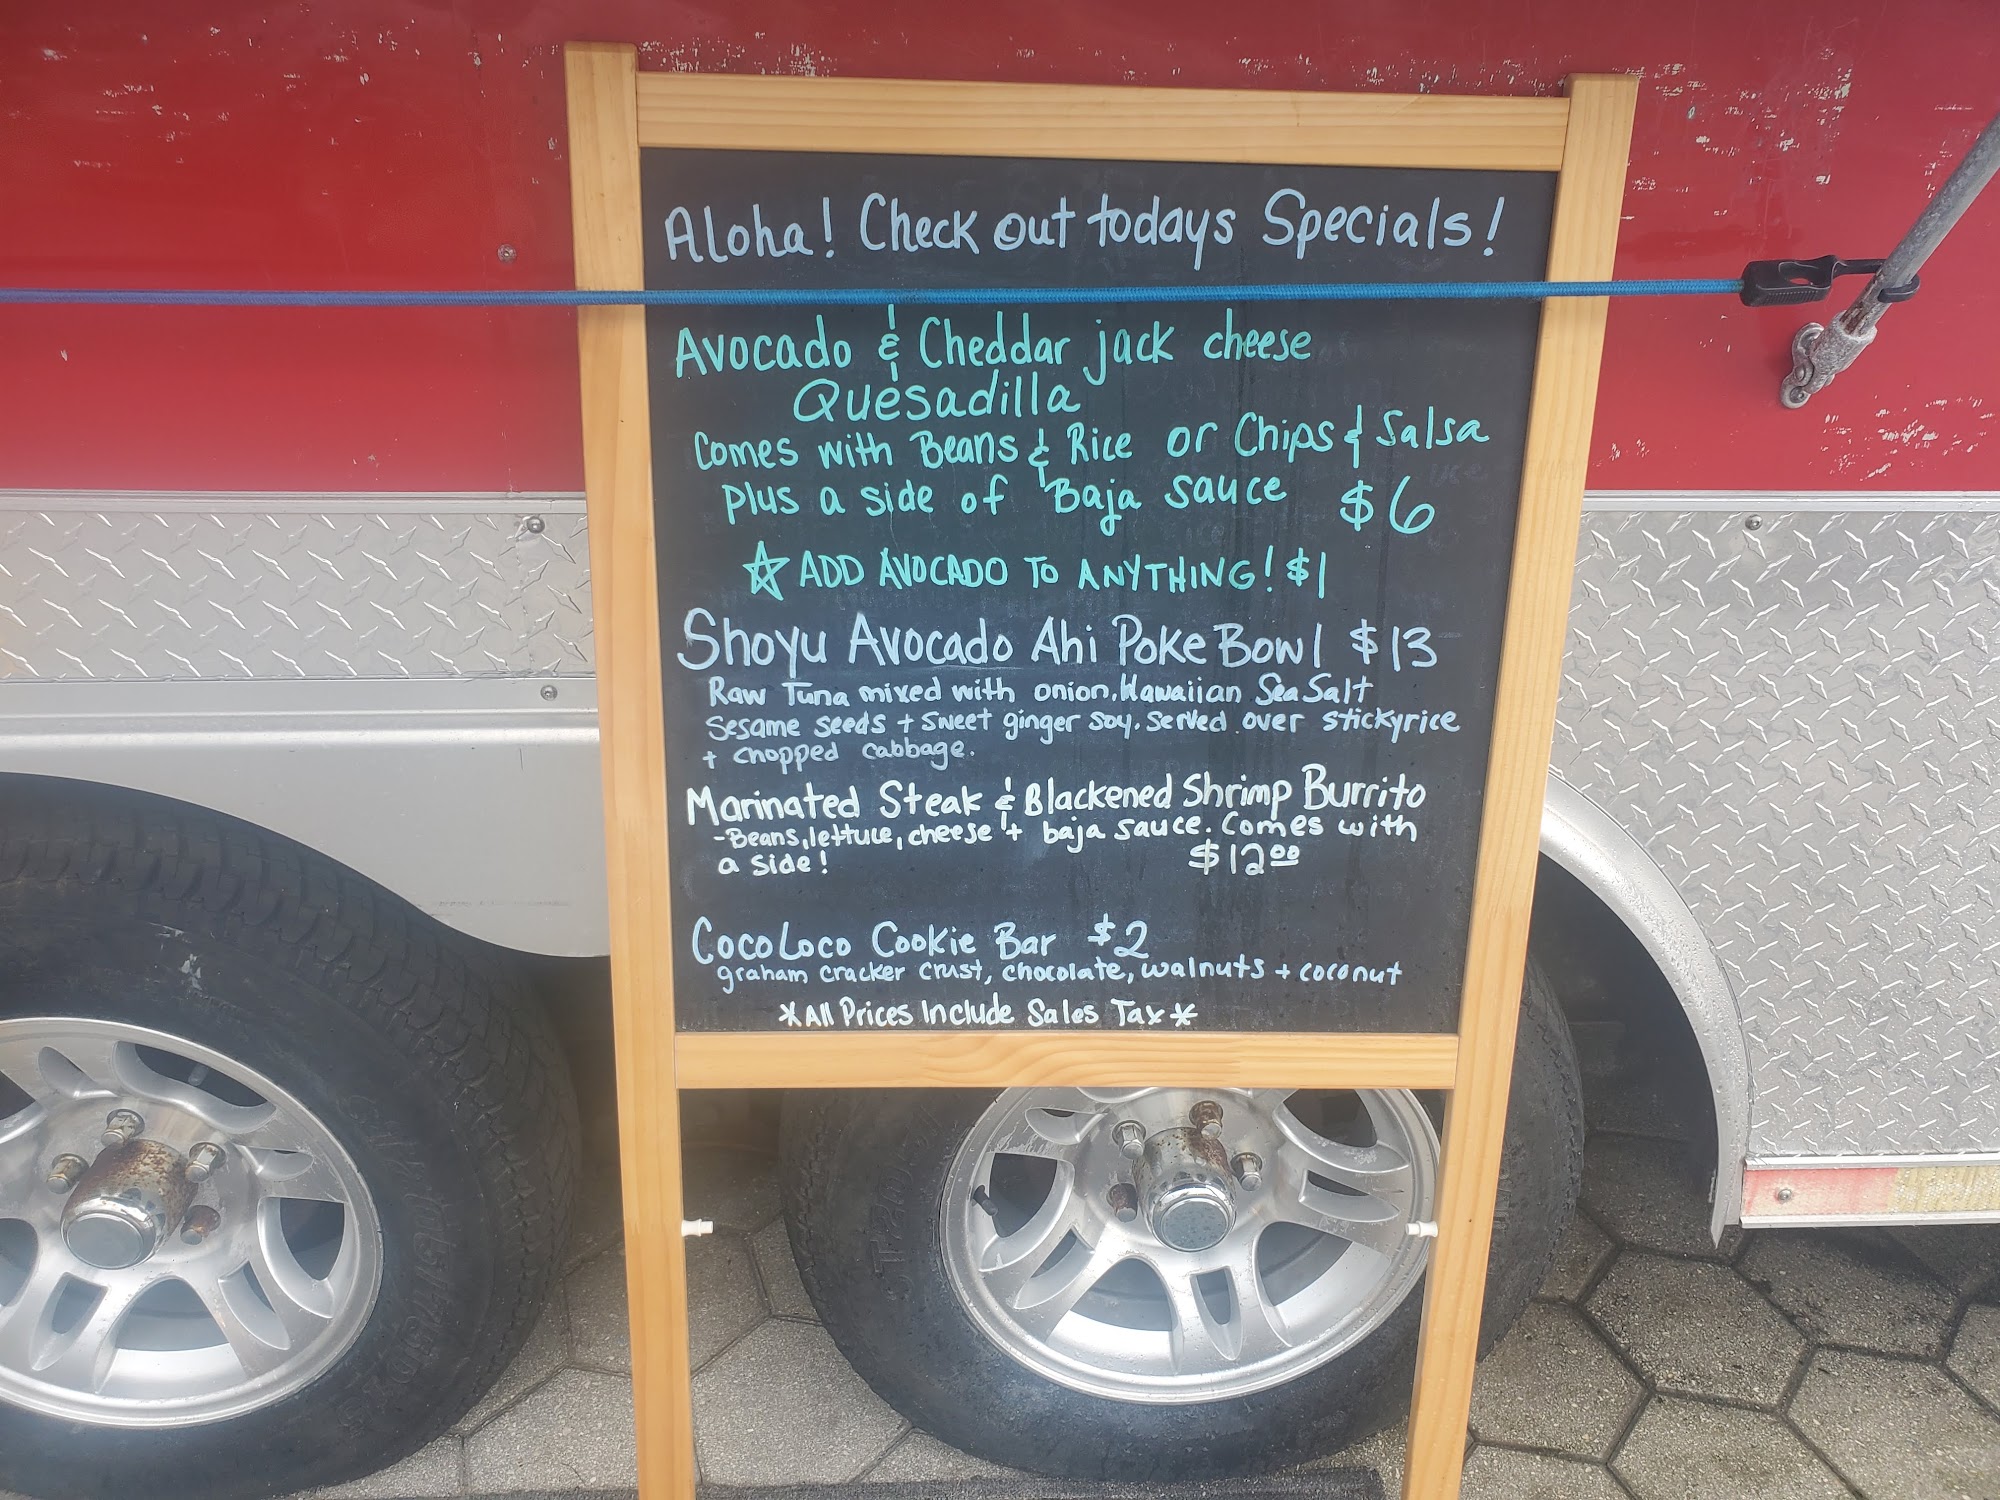 Aloha! Check out todays Specials!
Avocado & Cheddar jack cheese
Quesadilla
Comes with Beans & Rice or Chips & Salsa
plus a side of Baja sauce $6
☆ ADD AVOCADO TO ANYTHING! $1
Shoyu Avocado Ahi Poke Bowl $13
Raw Tuna mixed with onion, Hawaiian Sea Salt
sesame seeds + sweet ginger soy. served over stickyrice
+ chopped cabbage.
Marinated Steak & Blackened Shrimp Burrito
-Beans, lettuce, cheese + baja sauce. Comes with
a side! $12.00
Coco Loco Cookie Bar $2
graham cracker crust, chocolate, walnuts + coconut
*All Prices Include Sales Tax*